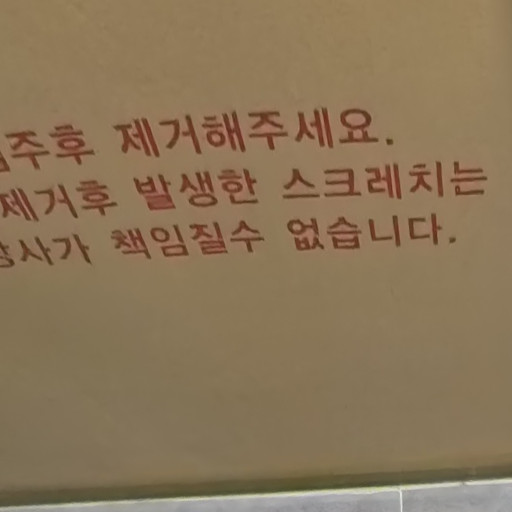 입주후 제거해주세요.
제거후 발생한 스크레치는
당사가 책임질수 없습니다.